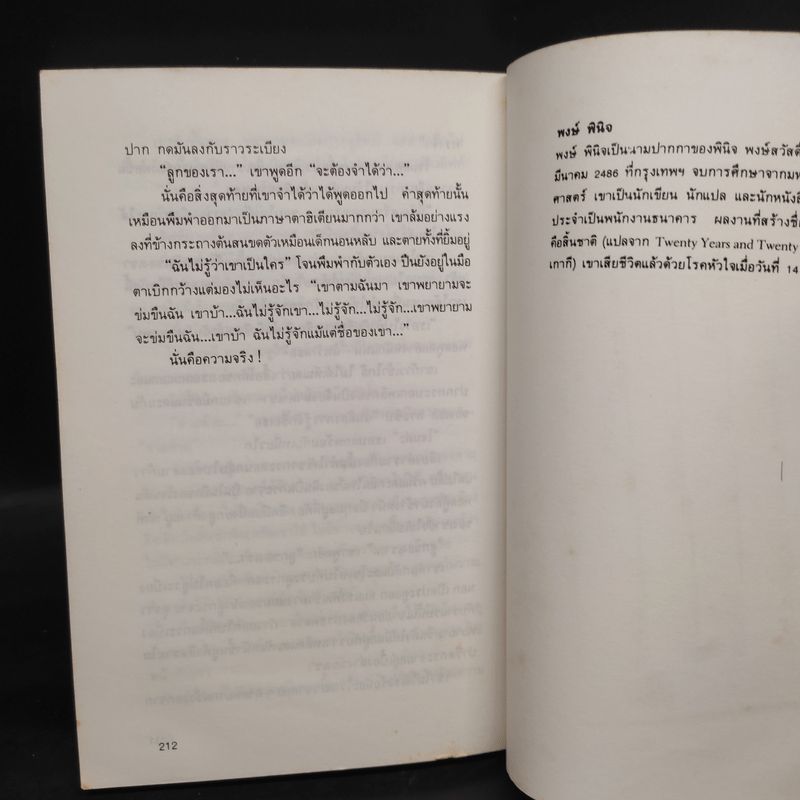 ปาก กดมันลงกับราวระเบียง
“ลูกของเรา...” เขาพูดอีก “จะต้องจำได้ว่า...”
นั่นคือสิ่งสุดท้ายที่เขาจำได้ว่าได้พูดออกไป คำสุดท้ายนั้น
เหมือนพึมพำออกมาเป็นภาษาตาฮิเตียนมากกว่า เขาล้มอย่างแรง
ลงที่ข้างกระถางต้นสนขดตัวเหมือนเด็กนอนหลับ และตายทั้งที่ยิ้มอยู่
“ฉันไม่รู้ว่าเขาเป็นใคร” โจนพึมพำกับตัวเอง ปืนยังอยู่ในมือ
ตาเบิกกว้างแต่มองไม่เห็นอะไร “เขาตามฉันมา เขาพยายามจะ
ข่มขืนฉัน เขาบ้า...ฉันไม่รู้จักเขา...ไม่รู้จัก...ไม่รู้จัก...เขาพยายาม
จะข่มขืนฉัน...เขาบ้า ฉันไม่รู้จักแม้แต่ชื่อของเขา...”
นั่นคือความจริง !
212
พงษ์ พินิจ
พงษ์ พินิจเป็นนามปากกาของพินิจ พงษ์สวัสดิ์
มีนาคม 2486 ที่กรุงเทพฯ จบการศึกษาจากมห
ศาสตร์ เขาเป็นนักเขียน นักแปล และนักหนังสื
ประจำเป็นพนักงานธนาคาร ผลงานที่สร้างชื่อ
คือสิ้นชาติ (แปลจาก Twenty Years and Twenty
เกากี) เขาเสียชีวิตแล้วด้วยโรคหัวใจเมื่อวันที่ 14